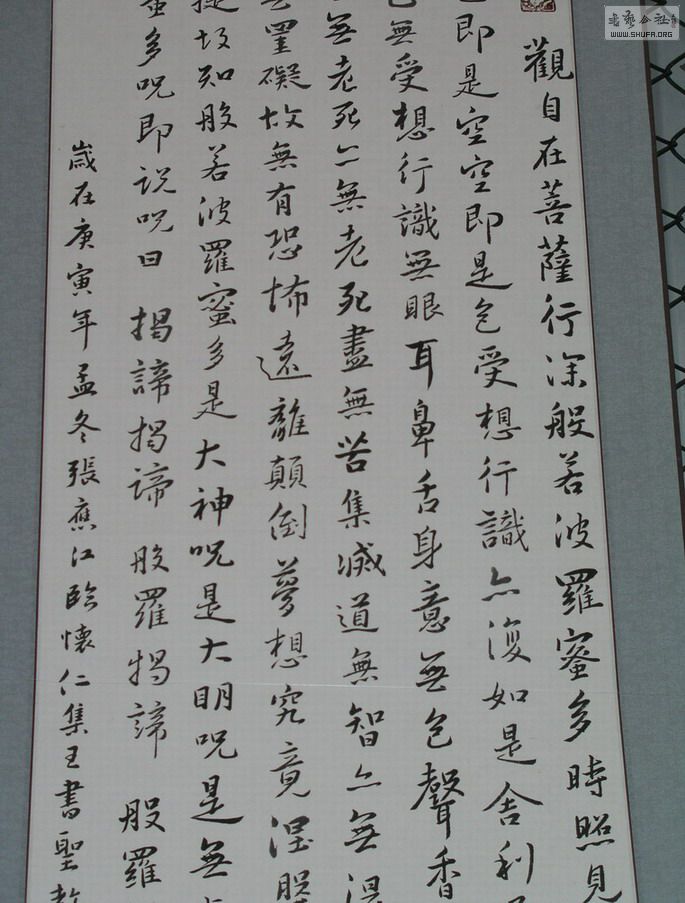 觀自在菩薩行深般若波羅蜜多時照見
即是空空即是色受想行識亦復如是舍利
無受想行識無眼耳鼻舌身意無色聲香
無老死亦無老死盡無苦集滅道無智亦無得
罣礙故無有恐怖遠離顛倒夢想究竟涅槃
故知般若波羅蜜多是大神呪是大明呪是無
蜜多呪即說呪曰 揭諦揭諦 般羅揭諦 般羅
歲在庚寅年孟冬張應江臨懷仁集王書聖教
書藝公社
WWW.SHUFA.ORG